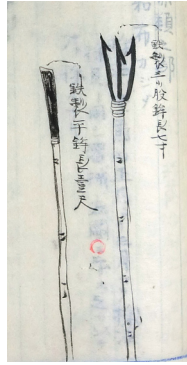 鉄製三股鉾長七寸
鉄製平鉾長壹尺